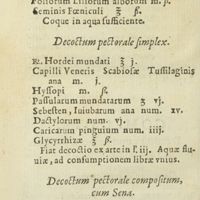 Foliorum Liliorum alborum m. ß.
Seminis Fœniculi ʒ ß.
Coque in aqua sufficiente.
Decoctum pectorale simplex.
℞. Hordei mundati ℥ j.
Capilli Veneris Scabiosæ Tussilaginis
ana m. j.
Hyssopi m. ß.
Passularum mundatarum ʒ vj.
Sebesten, Iuiubarum ana num. xv.
Dactylorum num. vj.
Caricarum pinguium num. iiij.
Glycyrrhizæ ℥ ß.
Fiat decoctio ex arte in l. iij. Aquæ fluuiæ, ad consumptionem libræ vnius.
Decoctum pectorale compositum,
cum Sena.